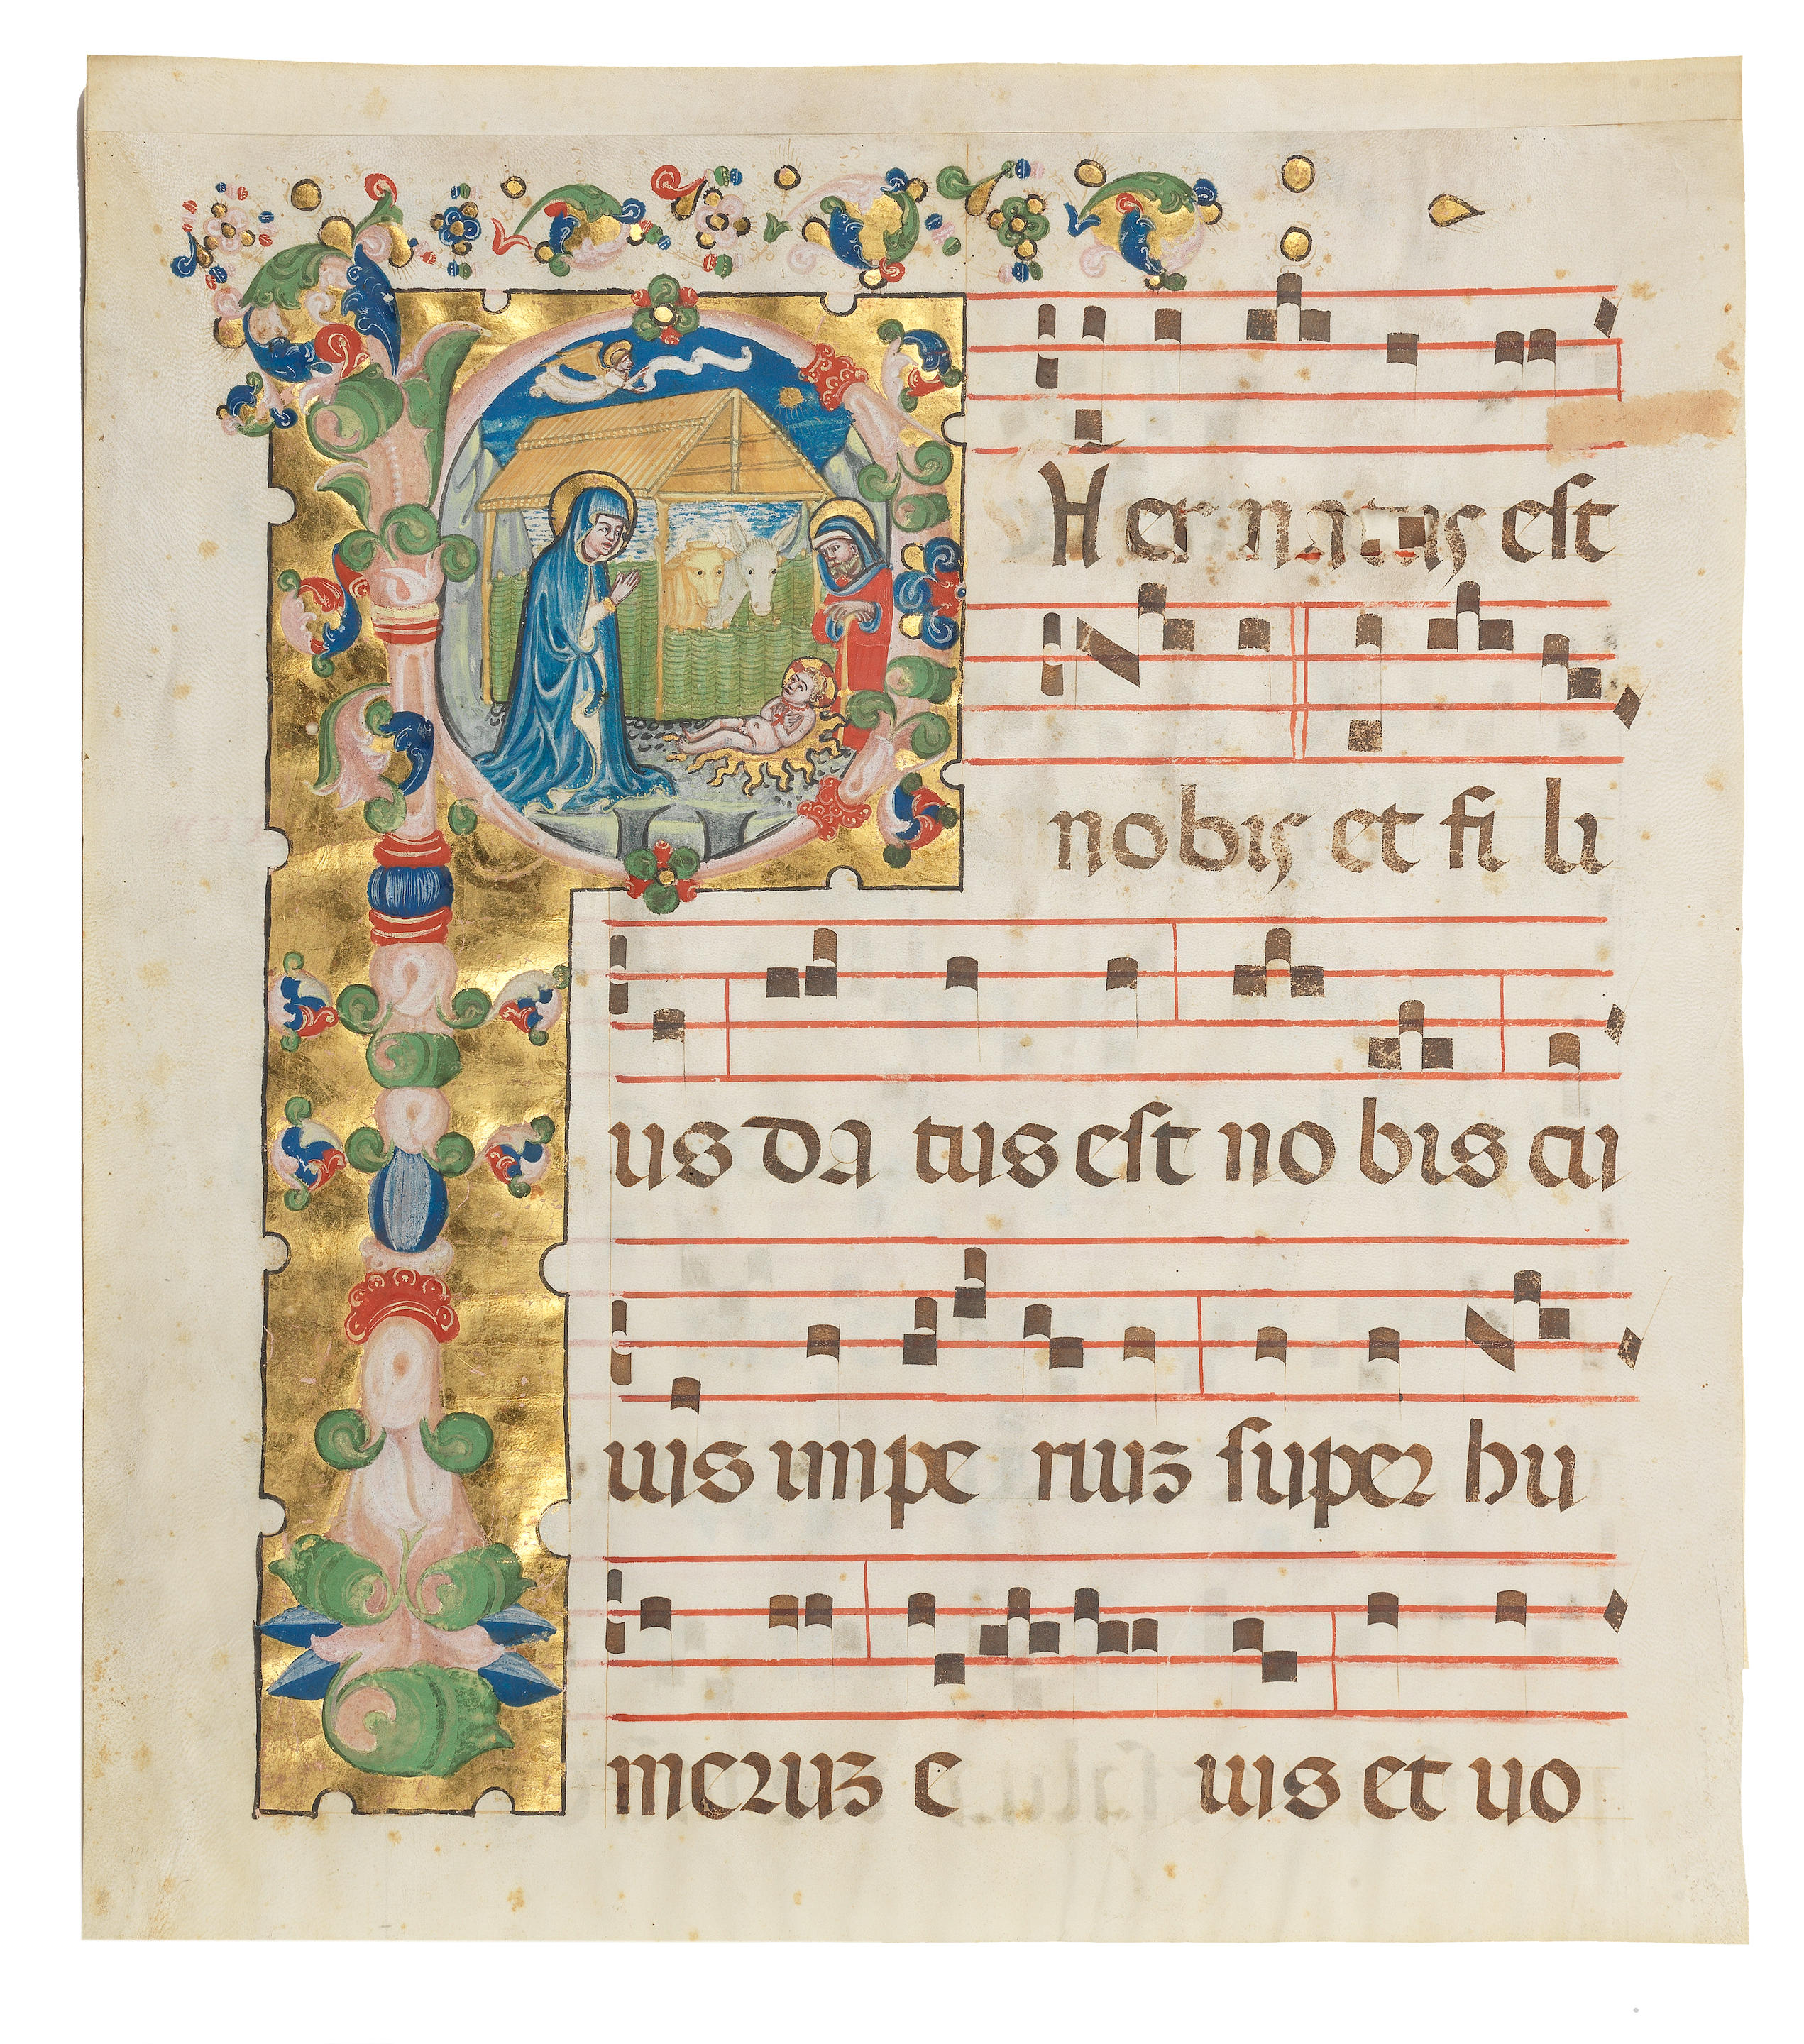 P
H̃er natus est
nobis et fi li
us da tus est no bis cu
ius impe riuʒ super hu
meruʒ e ius et uo